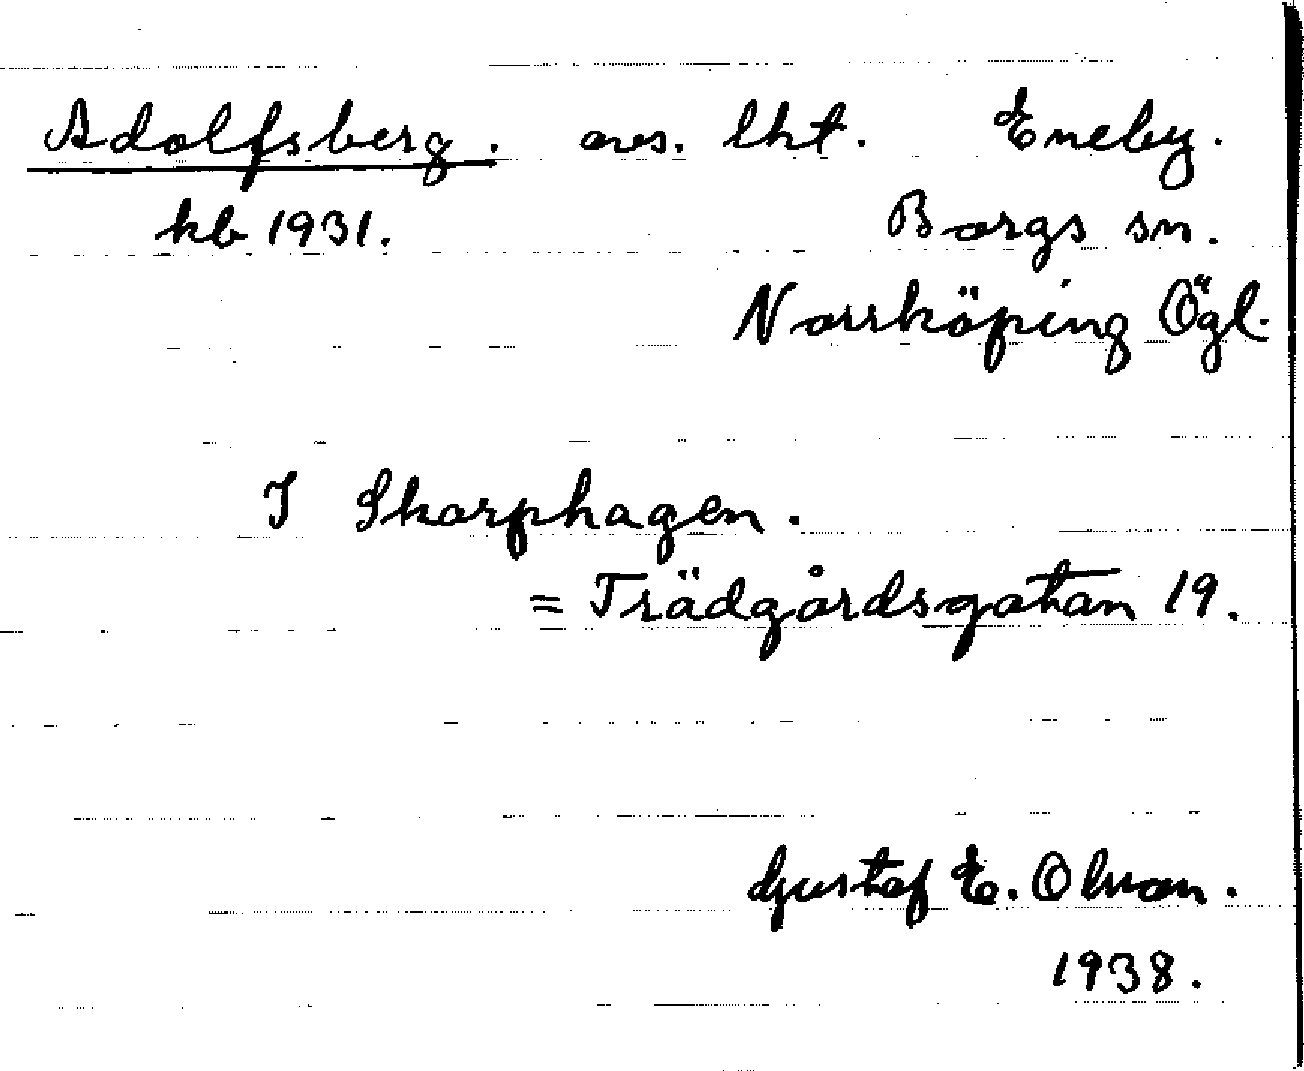 Adolfsberg. avs. lht. Eneby.
kb 1931. Borgs sn.
Norrköping Ögl.
I Skarphagen.
= Trädgårdsgatan 19.
Gustaf E. Olson.
1938.